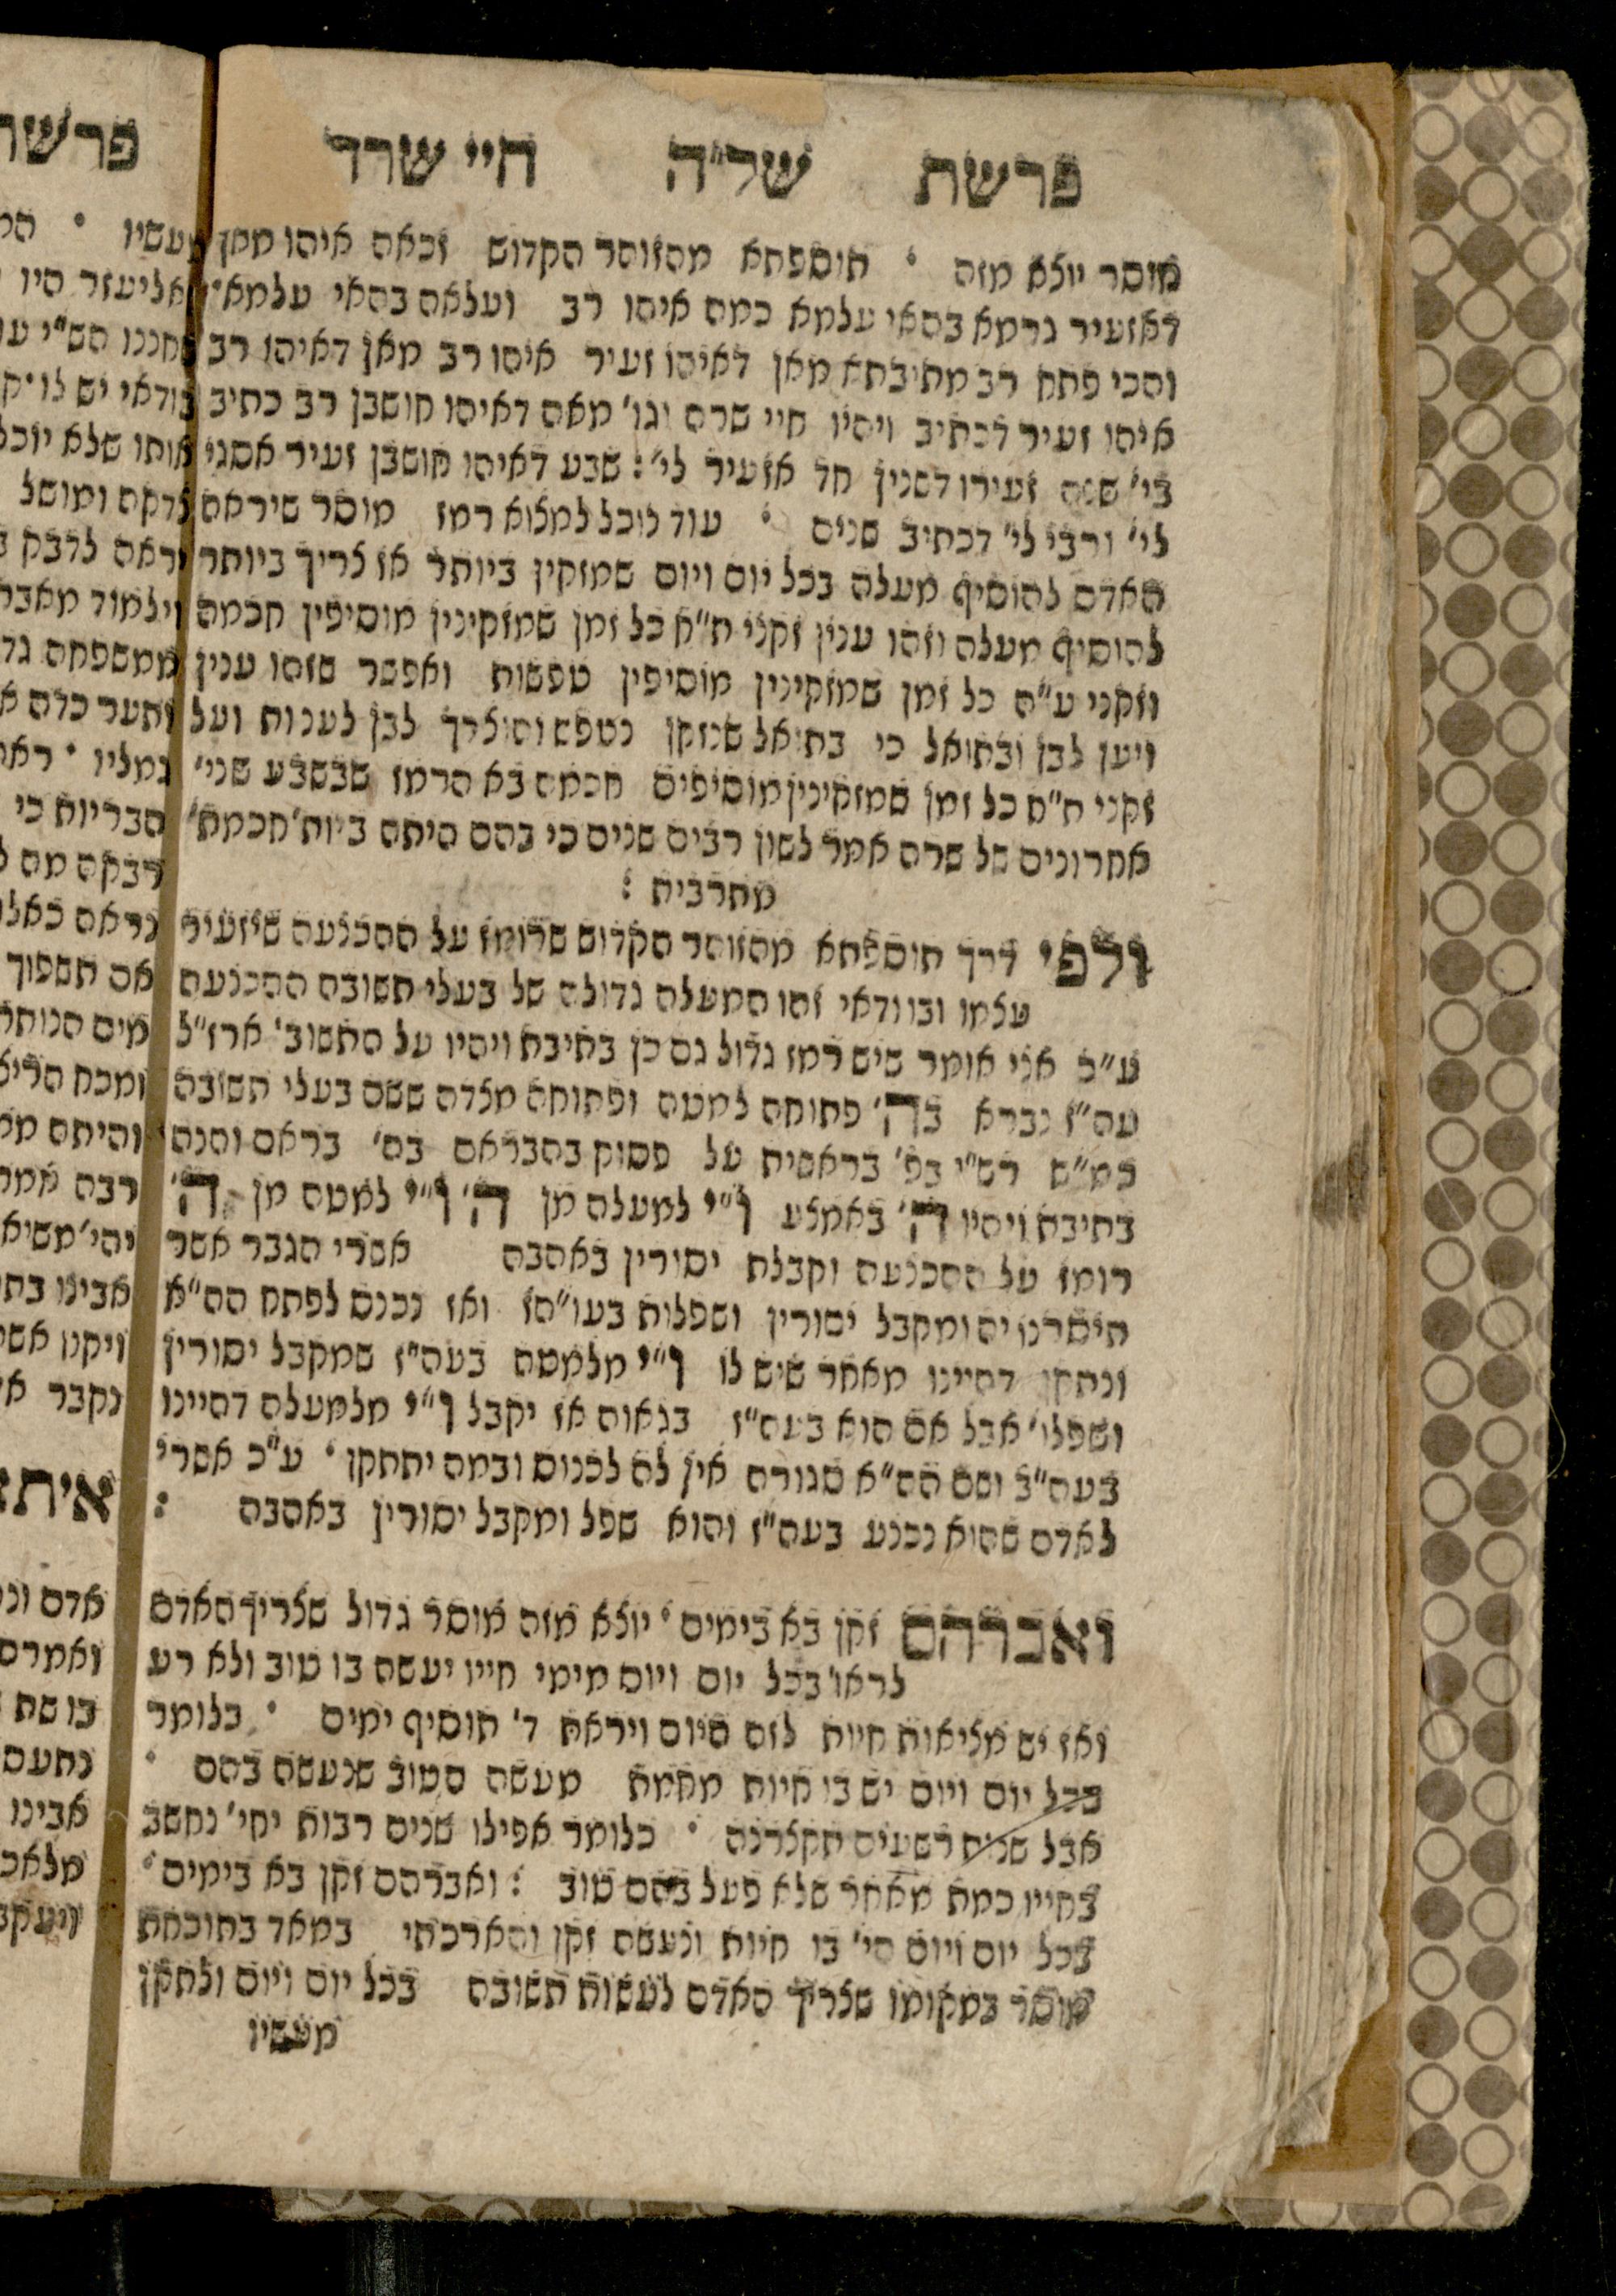 פרשת של"ה חיי שרה
מוסר יוצא מזה • תוספתא מהזוהר הקדוש זכאה איהו ממן
דאזעיר גרמא בהאי עלמא כמה איהו רב ועלאה בהאי עלמא
והכי פתח רב מתיבתא מאן דאיהו זעיר איהו רב מאן דאיהו רב
איהו זעיר דכתיב ויהיו חיי שרה וגו' מאה דאיהו חושבן רב כתיב
בי' שנה זעירו דשנין חד אזעיר לי': שבע דאיהו חושבן זעיר אסגי
לי' ורבי לי' דכתיב שנים • עוד נוכל למצוא רמז מוסר שיראה
האדם להוסיף מעלה בכל יום ויום שמזקין ביותר אז צריך ביותר
להוסיף מעלה וזהו ענין זקני ת"ח כל זמן שמזקינין מוסיפין חכמה
וזקני ע"ה כל זמן שמזקינין מוסיפין טפשות ואפשר שזהו ענין
ויען לבן ובתואל כי בתואל שנזקן נטפש והוצרך לבן לענות ועל
זקני ת"ח כל זמן שמזקינין מוסיפים חכמה בא הרמז שבשבע שני'
אחרונים של שרה אמר לשון רבים שנים כי בהם היתה ביות' חכמת'
מתרבית :
ולפי דרך תוספתא מהזוהר הקדוש שרומז על ההכנעה שיזעיר
עצמו ובוודאי זהו המעלה גדולה של בעלי תשובה ההכנעה
ע"כ אני אומר שיש רמז גדול גם כן בתיבת ויהיו על התשוב' ארז"ל
עה"ז נברא בה' פתוחה למטה ופתוחה מצדה ששם בעלי תשובה
כמ"ש רש"י בפ' בראשית על פסוק בהבראם בה' בראם והנה
בתיבת ויהיו ה' באמצע ו"י למעלה מן ה' ו"י למטה מן ה'
רומז על ההכנעה וקבלת יסורין באהבה אשרי הגבר אשר
תיסרנו יה ומקבל יסורין ושפלות בעו"הז ואז נכנס לפתח הה"א
ונתתקן דהיינו מאחר שיש לו ו"י מלמטה בעה"ז שמקבל יסורין
ושפלו' אבל אם הוא בעה"ז בגאוה אז יקבל ו"י מלמעלה דהיינו
בעה"ב ושם הה"א סגורה אין לה לכנוס ובמה יתתקן • ע"כ אשרי
לאדם שהוא נכנע בעה"ז והוא שפל ומקבל יסורין באהבה :
ואברהם זקן בא בימים • יוצא מזה מוסר גדול שצריך האדם
לראו' בכל יום ויום מימי חייו יעשה בו טוב ולא רע
ואז יש מציאות חיות לזה היום ויראת ד' תוסיף ימים • כלומר
בכל יום ויום יש בו חיות מחמת מעשה הטוב שנעשה בהם •
אבל שנות רשעים תקצרנה • כלומר אפילו שנים רבות יחי' נחשב
בחייו כמת מאחר שלא פעל בהם טוב : ואברהם זקן בא בימים •
בכל יום ויום הי' בו חיות ונעשה זקן והארכתי במאד בתוכחת
מוסר במקומו שצריך האדם לעשות תשובה בכל יום ויום ולתקן
מעשיו